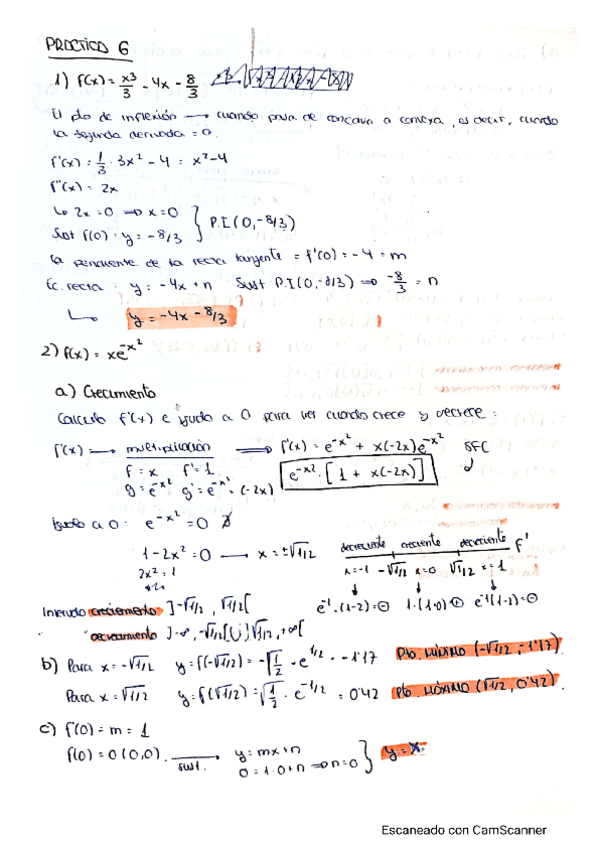 PRACTICO 6
1) f(x) = x3/3 - 4x - 8/3
El pto de inflexión → cuando pasa de concava a convexa, es decir, cuando
la segunda derivada = 0.
f'(x) = 1/3 · 3x² - 4 = x²-4
f''(x) = 2x
↳ 2x = 0 ⇒ x = 0 } P.I (0, -8/3)
Sust f(0) · y = -8/3
La pendiente de la recta tangente = f'(0) = -4 = m
Ec. recta : y = -4x + n Sust P.I (0, -8/3) ⇒ -8/3 = n
↳ y = -4x - 8/3
2) f(x) = xe^-x²
a) Crecimiento
Calculo f'(x) e igualo a 0 para ver cuando crece y decrece :
f'(x) → multiplicación ⇒ f'(x) = e^-x² + x(-2x)e^-x²
f = x f' = 1 e^-x² · [1 + x(-2x)]
g = e^-x² g' = e^-x² · (-2x)
Igualo a 0 : e^-x² = 0 ∄
1 - 2x² = 0 → x = ±√1/2 decreciente creciente decreciente f'
2x² = 1 x=-1 -√1/2 x=0 √1/2 x=1
e^-1 · (1-2) = ⊖ 1·(1-0) ⊕ e^-1(1-2) = ⊖
Intervalo crecimiento ]-√1/2, √1/2[
decrecimiento ]-∞, -√1/2[ U ]√1/2, +∞[
b) Para x = -√1/2 y = f(-√1/2) = -√1/2 · e^1/2 = -1'17 Pto. MÍNIMO (-√1/2 ; -1'17)
Para x = √1/2 y = f(√1/2) = √1/2 · e^-1/2 = 0'42 Pto. MÁXIMO (√1/2, 0'42)
c) f'(0) = m = 1
f(0) = 0 (0,0) → sust. y = mx + n } y = x
0 = 1·0 + n ⇒ n = 0
Escaneado con CamScanner